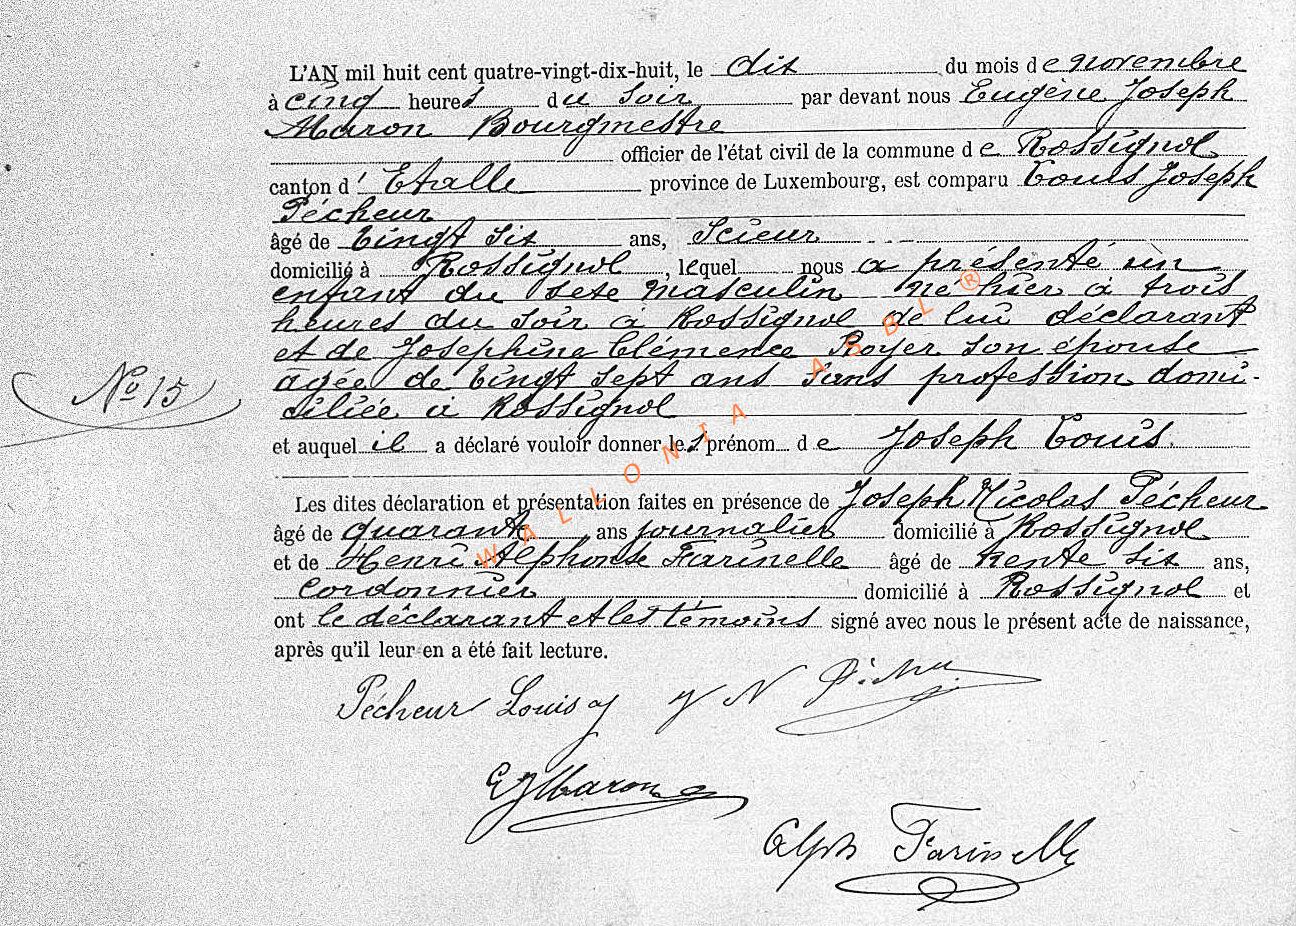 L'AN mil huit cent quatre-vingt-dix-huit, le dix du mois de novembre
à cinq heures du soir par devant nous Eugène Joseph
Maron Bourgmestre
officier de l'état civil de la commune de Rossignol
canton d'Etalle province de Luxembourg, est comparu Louis Joseph
Pécheur
âgé de vingt six ans, Scieur
domicilié à Rossignol, lequel nous a présenté un
enfant du sexe masculin né hier à trois
heures du soir à Rossignol de lui déclarant
et de Joséphine Clémence Royer son épouse
âgée de vingt sept ans sans profession domi-
ciliée à Rossignol
N° 15
et auquel il a déclaré vouloir donner les prénom de Joseph Louis.
Les dites déclaration et présentation faites en présence de Joseph Nicolas Pécheur
âgé de quarante ans journalier domicilié à Rossignol
et de Henri Alphonse Farinelle âgé de trente six ans,
cordonnier domicilié à Rossignol et
ont le déclarant et les témoins signé avec nous le présent acte de naissance,
après qu'il leur en a été fait lecture.
Pécheur Louis J N Pécheur
E J Maron
Alph Farinelle
WALLONIA ASBL ®